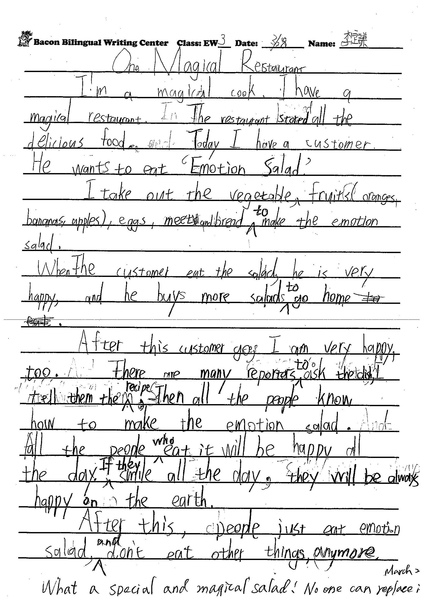 Bacon Bilingual Writing Center Class: EW3 Date: 3/8 Name:
One Magical Restaurant
I'm a magical cook. I have a
magical restaurant. In The restaurant stored all the
delicious food. Today I have a customer.
He wants to eat "Emotion Salad"
I take out the vegetable, fruits( oranges,
bananas, apples), eggs, meet and bread to make the emotion
salad.
When The customer eat the salad, he is very
happy, and he buys more salads to go home
After this customer goes I am very happy,
too. There are many reporters to ask the dish, I
tell them the recipe. Then all the people know
how to make the emotion salad. And
all the people who eat it will be happy all
the day. If they smile all the day, they will be always
happy on the earth.
After this, people just eat emotion
salad, and don't eat other things anymore.
March >
What a special and magical salad! No one can replace i